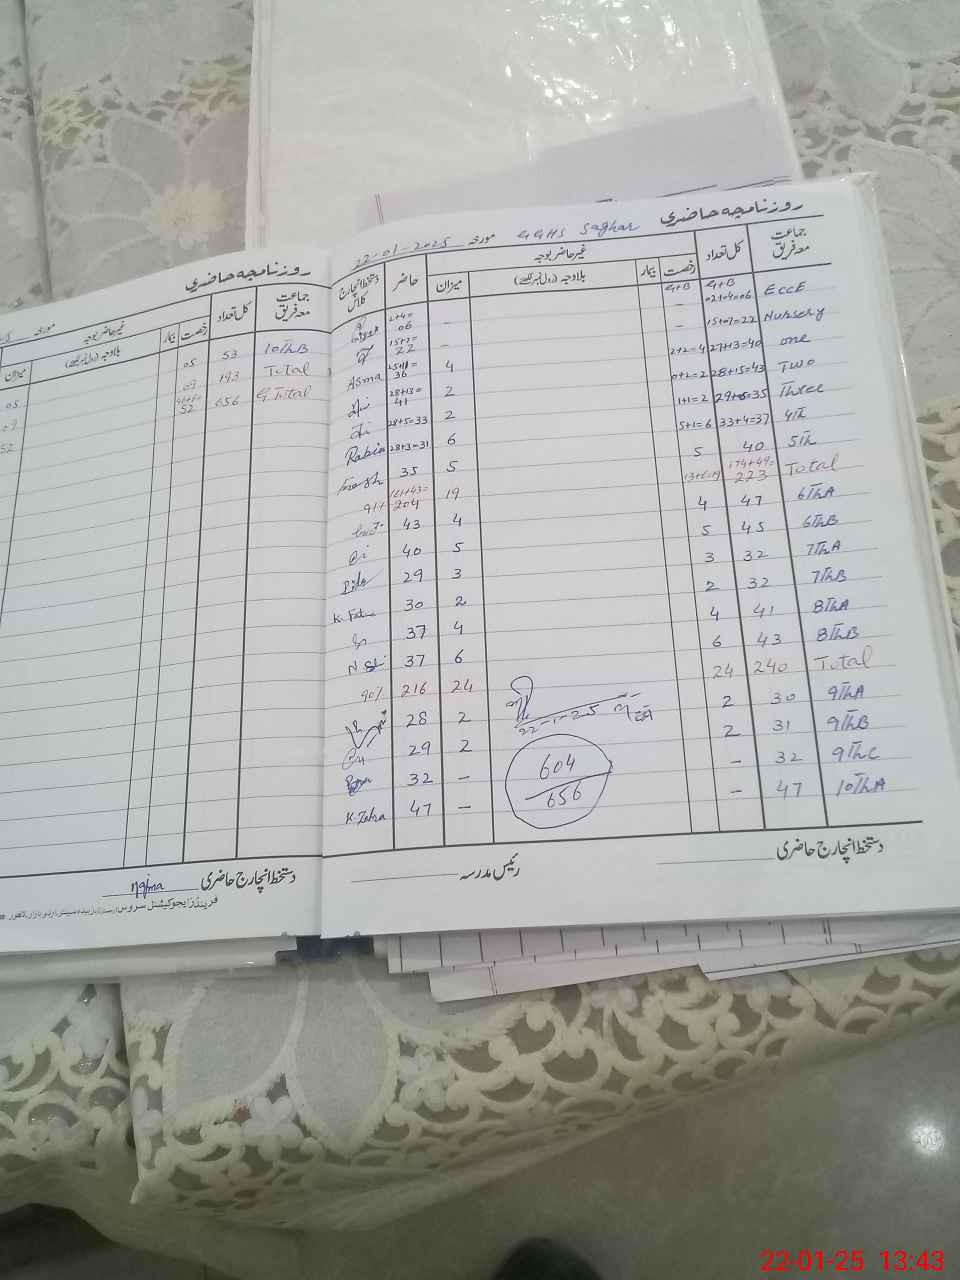 روزنامچہ حاضری
مورخہ 22-01-2025 GGHS Saghar
جماعت معہ فریق کل تعداد رخصت بیمار غیر حاضر بوجہ بلاوجہ (رول نمبر لکھیے) میزان حاضر دستخط انچارج کلاس
G+B G+B
EccE 02+4=06 – – 2+4=06
Nursery 15+07=22 – – 15+7=22
one 27+13=40 2+2=4 4 25+11=36 Asma
Two 28+15=43 0+2=2 2 28+13=41
Three 29+6=35 1+1=2 2 28+5=33
4th 33+4=37 5+1=6 6 28+3=31 Rabia
5th 40 5 5 35
Total 174+49=223 13+6=19 19 161+43=204
6ThA 47 4 4 43
6ThB 45 5 5 40
7ThA 32 3 3 29
7ThB 32 2 2 30 K. Fatma
8ThA 41 4 4 37
8ThB 43 6 6 37
Total 240 24 24 216 90%
9ThA 30 2 2 28
9ThB 31 2 2 29
9ThC 32 – – 32
10ThA 47 – – 47 K. Zahra
22-1-25
604
656
دستخط انچارج حاضری
رئیس مدرسہ
روزنامچہ حاضری
مورخہ
جماعت معہ فریق کل تعداد رخصت بیمار غیر حاضر بوجہ بلاوجہ (رول نمبر لکھیے) میزان
10ThB 53 05 05
Total 193 09 09
G Total 656 52 52
دستخط انچارج حاضری Najma
فرینڈز ایجوکیشنل سروس
22-01-25 13:43